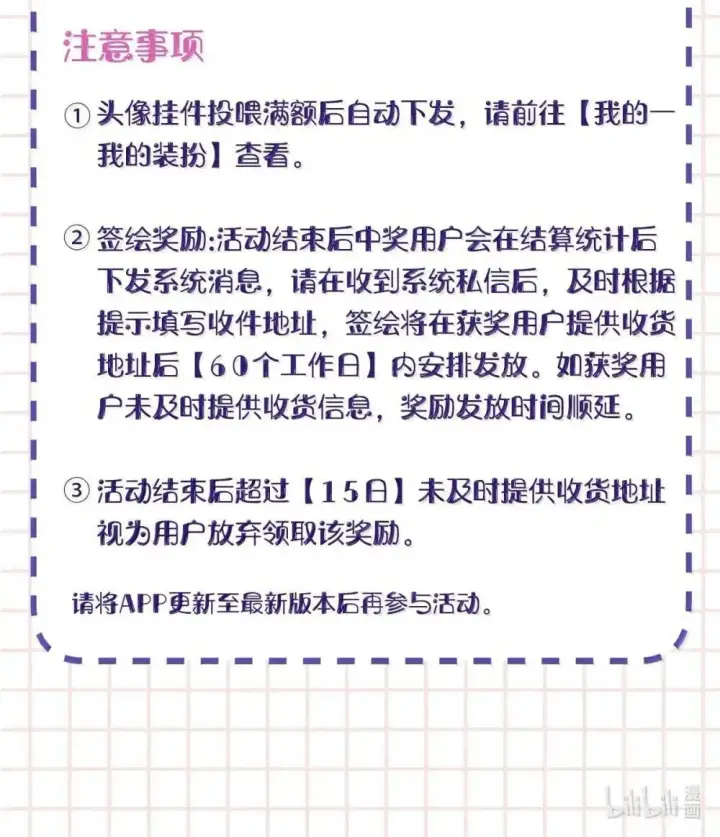 注意事项
① 头像挂件投喂满额后自动下发，请前往【我的一
我的装扮】查看。
② 签绘奖励:活动结束后中奖用户会在结算统计后
下发系统消息，请在收到系统私信后，及时根据
提示填写收件地址，签绘将在获奖用户提供收货
地址后【60个工作日】内安排发放。如获奖用
户未及时提供收货信息，奖励发放时间顺延。
③ 活动结束后超过【15日】未及时提供收货地址
视为用户放弃领取该奖励。
请将APP更新至最新版本后再参与活动。
bilibili 漫画